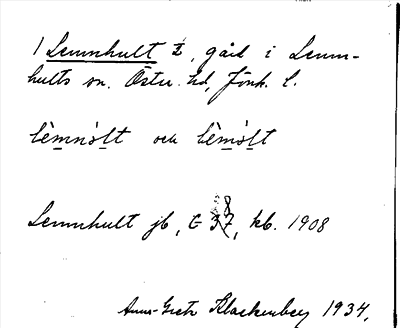 1 Lemnhult 2, gård i Lemn-
hults sn. Östra hd, Jönk. l.
lèmnòlt och lèmòlt
Lemnhult jb, G 37 8, kb. 1908
Ann-Gret Klackenberg 1934.